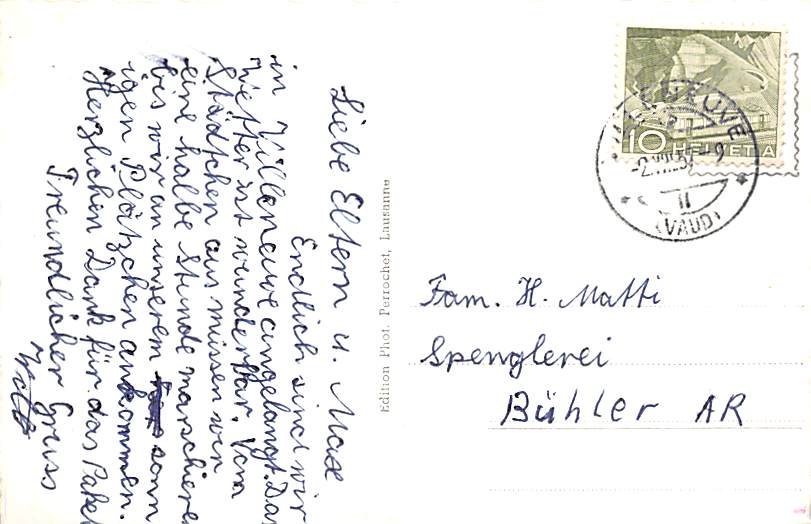 Liebe Eltern u. Max
Endlich sind wir
in Villeneuve angelangt. Das
Wetter ist wunderbar. Vom
Städtchen aus müssen wir
eine halbe Stunde marschieren
bis wir an unserem sonn
igen Plätzchen ankommen.
Herzlichen Dank für das Paket
Freundlicher Gruss
Edition Phot. Perrochet, Lausanne
10 HELVETIA
VILLENEUVE
(VAUD)
Fam. H. Matti
Spenglerei
Bühler AR